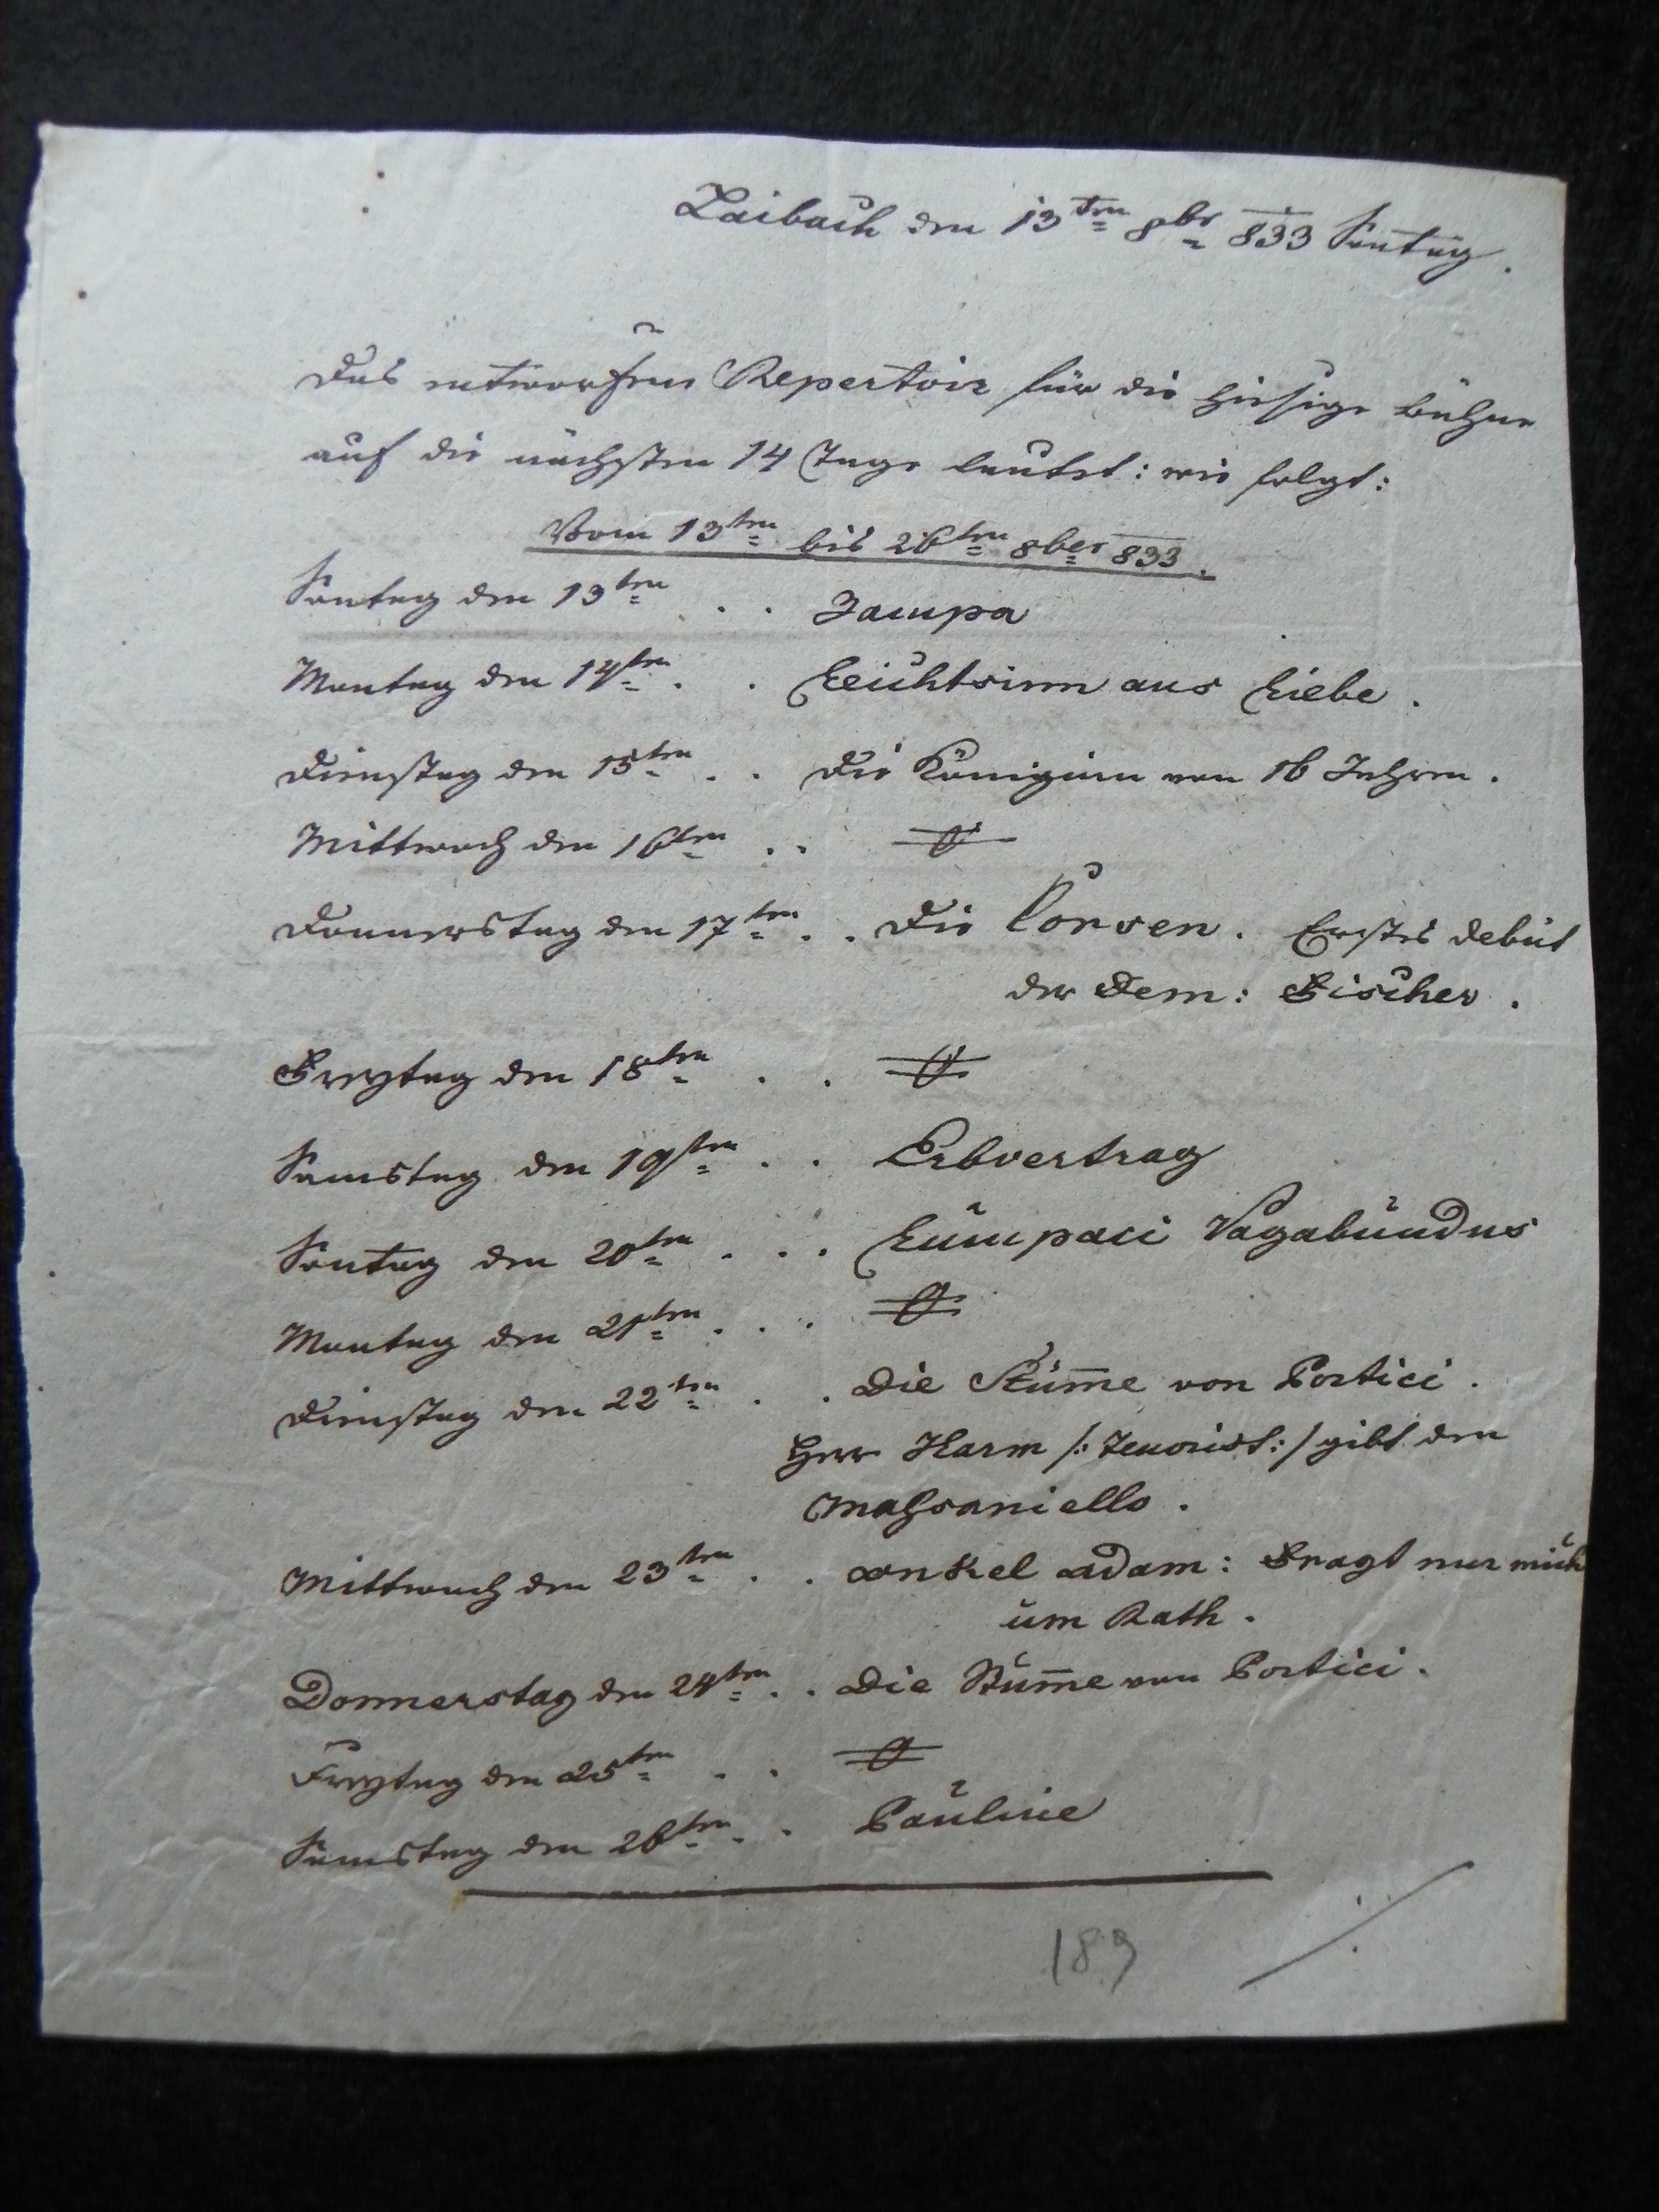 Laibach den 13ten 8br 833 Sontag.
Das entworfene Repertoir für die hiesige Bühne
auf die nächsten 14 Tage lautet: wie folgt:
Vom 13ten bis 26ten 8ber 833.
Sontag den 13ten . . Zampa
Montag den 14ten . . Leichtsinn aus Liebe.
Dienstag den 15ten . . Die Königinn von 16 Jahren.
Mittwoch den 16ten . .
Donnerstag den 17ten . . Die Corsen. Erstes debut
der Dem: Fischer.
Freytag den 18ten . .
Samstag den 19ten . . Erbvertrag
Sontag den 20ten . . . Lumpaci Vagabundus
Montag den 21ten . . .
Dienstag den 22ten . . Die Stum̅e von Portici.
Herr Karm /: Tenorist :/ gibt den
Maßaniello.
Mittwoch den 23ten . . Onkel Adam: Fragt nur mich
um Rath.
Donnerstag den 24ten . . Die Stum̅e von Portici.
Freytag den 25ten . .
Samstag den 26ten . . Pauline
189